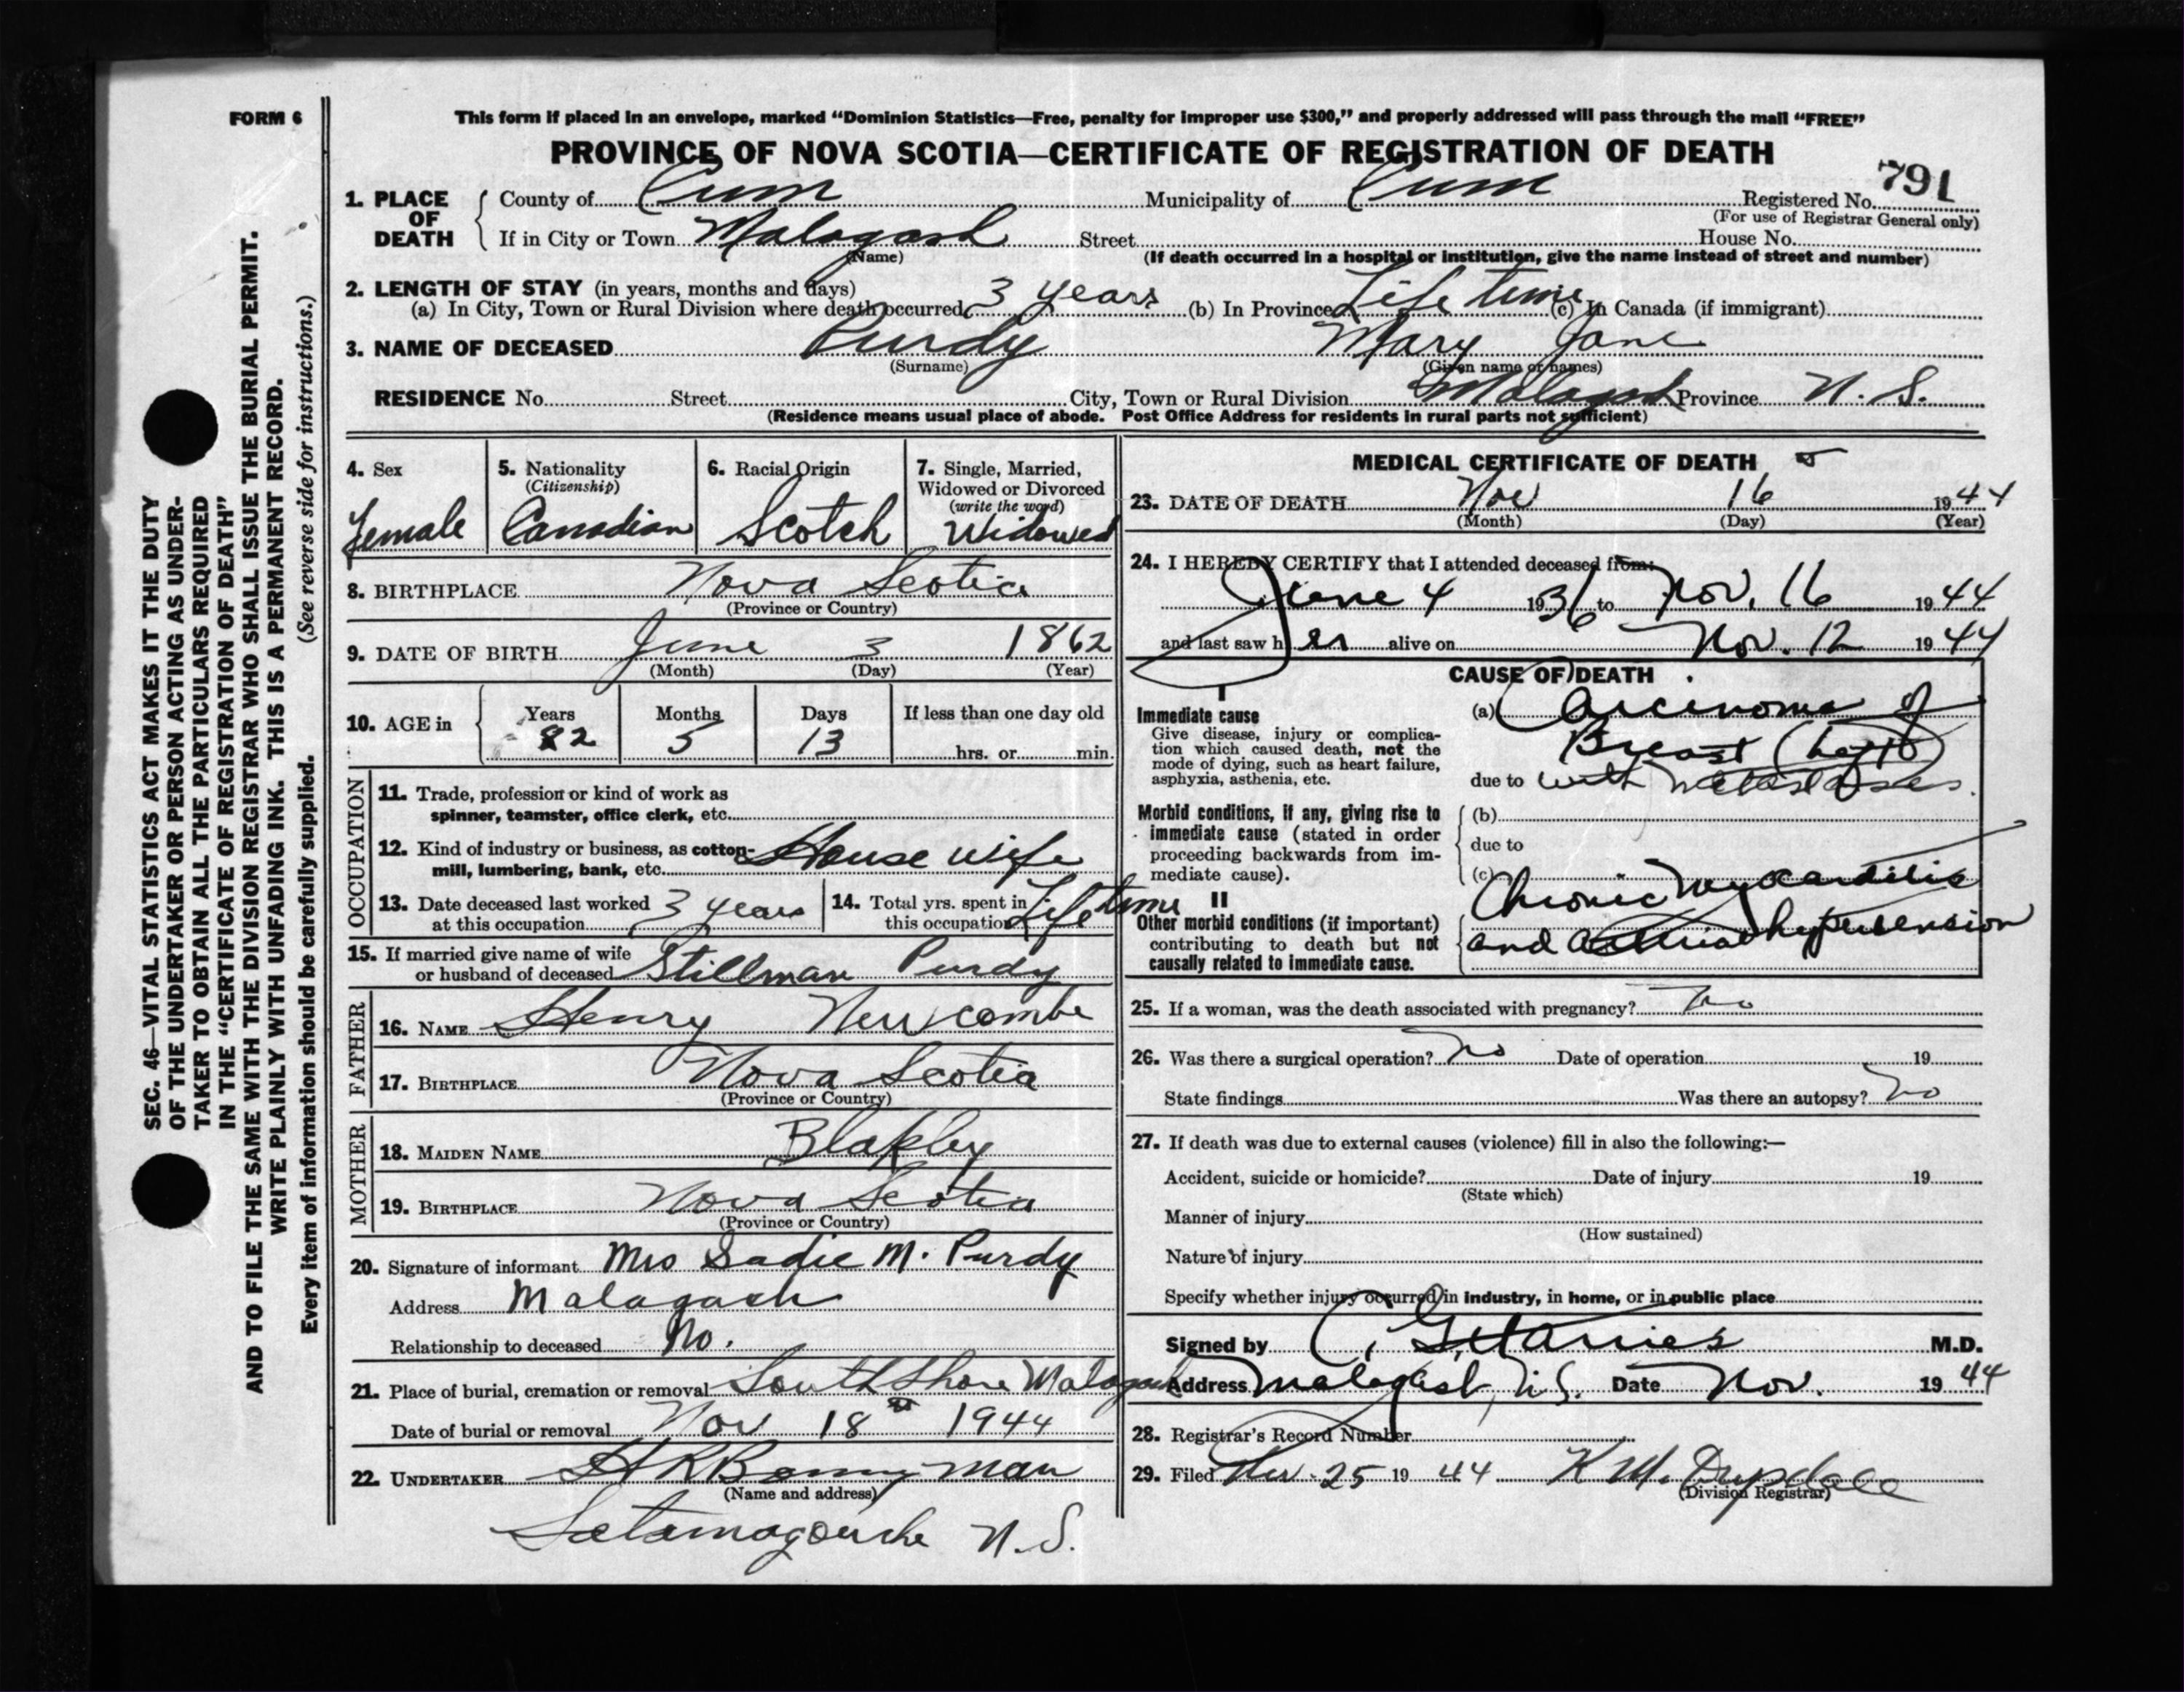 FORM 6
SEC. 46—VITAL STATISTICS ACT MAKES IT THE DUTY
OF THE UNDERTAKER OR PERSON ACTING AS UNDER-
TAKER TO OBTAIN ALL THE PARTICULARS REQUIRED
IN THE "CERTIFICATE OF REGISTRATION OF DEATH"
AND TO FILE THE SAME WITH THE DIVISION REGISTRAR WHO SHALL ISSUE THE BURIAL PERMIT.
WRITE PLAINLY WITH UNFADING INK. THIS IS A PERMANENT RECORD.
Every item of information should be carefully supplied. (See reverse side for instructions.)
This form if placed in an envelope, marked "Dominion Statistics—Free, penalty for improper use $300," and properly addressed will pass through the mail "FREE"
PROVINCE OF NOVA SCOTIA—CERTIFICATE OF REGISTRATION OF DEATH
791
1. PLACE OF DEATH County of Cum Municipality of Cum Registered No.
(For use of Registrar General only)
If in City or Town Malagash Street House No.
(Name) (If death occurred in a hospital or institution, give the name instead of street and number)
2. LENGTH OF STAY (in years, months and days)
(a) In City, Town or Rural Division where death occurred 3 years (b) In Province Life time (c) In Canada (if immigrant)
3. NAME OF DECEASED Purdy Mary Jane
(Surname) (Given name or names)
RESIDENCE No. Street City, Town or Rural Division Malagash Province N. S.
(Residence means usual place of abode. Post Office Address for residents in rural parts not sufficient)
4. Sex
Female
5. Nationality
(Citizenship)
Canadian
6. Racial Origin
Scotch
7. Single, Married,
Widowed or Divorced
(write the word)
Widowed
8. BIRTHPLACE Nova Scotia
(Province or Country)
9. DATE OF BIRTH June 3 1862
(Month) (Day) (Year)
10. AGE in Years Months Days If less than one day old
82 5 13 hrs. or min.
OCCUPATION
11. Trade, profession or kind of work as
spinner, teamster, office clerk, etc.
12. Kind of industry or business, as cotton-
mill, lumbering, bank, etc. House wife
13. Date deceased last worked
at this occupation 3 years
14. Total yrs. spent in
this occupation Life time
15. If married give name of wife
or husband of deceased Stillman Purdy
FATHER
16. NAME Henry Newcombe
17. BIRTHPLACE Nova Scotia
(Province or Country)
MOTHER
18. MAIDEN NAME Blakley
19. BIRTHPLACE Nova Scotia
(Province or Country)
20. Signature of informant Mrs Sadie M. Purdy
Address Malagash
Relationship to deceased No.
21. Place of burial, cremation or removal South Shore Malagash
Date of burial or removal Nov 18 1944
22. UNDERTAKER H R Bonnyman
(Name and address)
Tatamagouche N.S.
MEDICAL CERTIFICATE OF DEATH
23. DATE OF DEATH Nov 16 1944
(Month) (Day) (Year)
24. I HEREBY CERTIFY that I attended deceased from:
June 4 1936 to Nov. 16 1944
and last saw her alive on Nov. 12 1944
CAUSE OF DEATH
I
Immediate cause
Give disease, injury or complica-
tion which caused death, not the
mode of dying, such as heart failure,
asphyxia, asthenia, etc.
(a) Carcinoma of
Breast (Left)
due to with metastases.
Morbid conditions, if any, giving rise to
immediate cause (stated in order
proceeding backwards from im-
mediate cause).
(b)
due to
(c)
II
Other morbid conditions (if important)
contributing to death but not
causally related to immediate cause.
Chronic Myocarditis
and arterial hypertension
25. If a woman, was the death associated with pregnancy? No
26. Was there a surgical operation? No Date of operation 19
State findings Was there an autopsy? No
27. If death was due to external causes (violence) fill in also the following:—
Accident, suicide or homicide? Date of injury 19
(State which)
Manner of injury
(How sustained)
Nature of injury
Specify whether injury occurred in industry, in home, or in public place
Signed by C. G. Harries M.D.
Address Malagash, N.S. Date Nov. 1944
28. Registrar's Record Number
29. Filed Nov. 25 1944 K M. Drysdale
(Division Registrar)